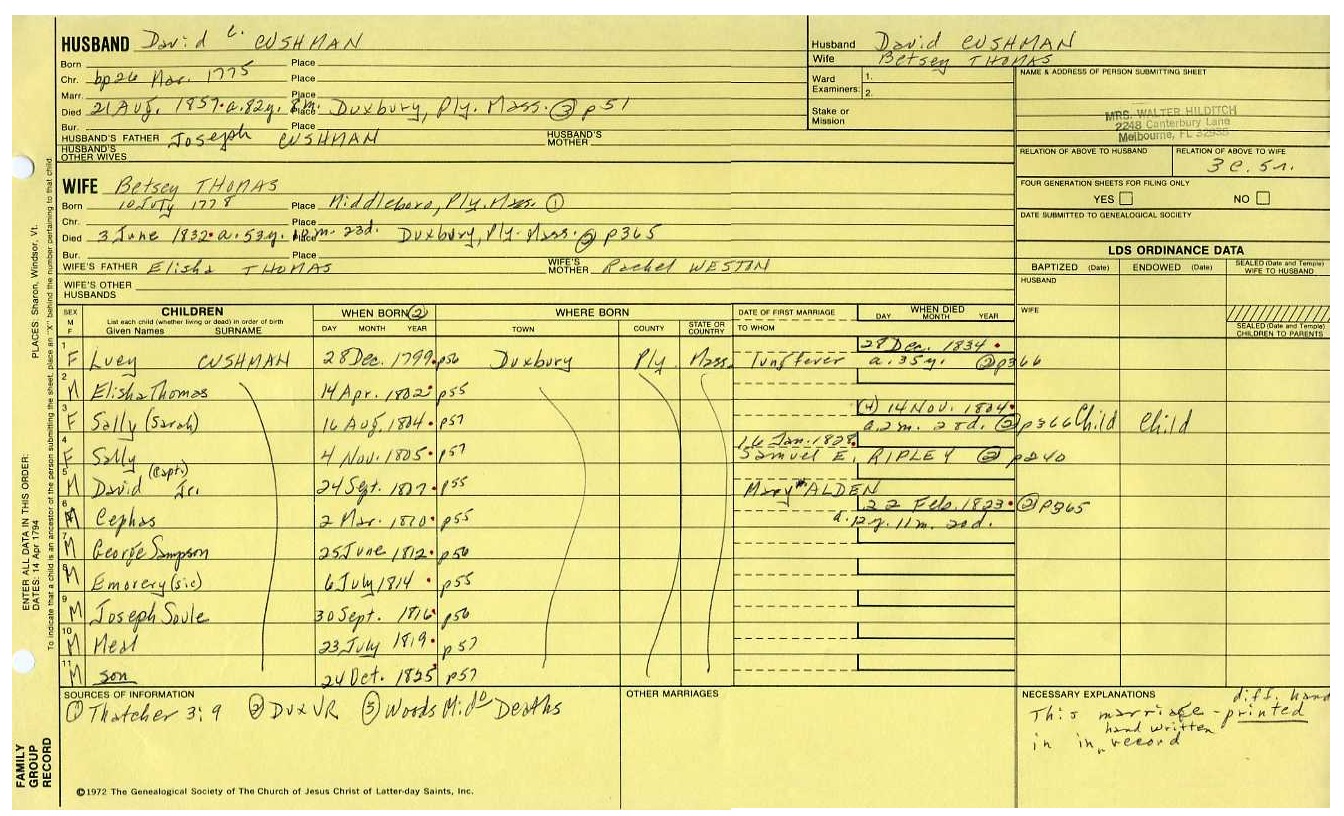 HUSBAND David C. CUSHMAN
Born Place
Chr. bp 26 Mar. 1775 Place
Marr. Place
Died 21 Aug. 1857 · a. 82y. 8m. Place Duxbury, Ply. Mass. ③ p51
Bur. Place
HUSBAND'S FATHER Joseph CUSHMAN HUSBAND'S MOTHER
HUSBAND'S OTHER WIVES
Husband David CUSHMAN
Wife Betsey THOMAS
Ward Examiners: 1. 2.
Stake or Mission
NAME & ADDRESS OF PERSON SUBMITTING SHEET
MRS. WALTER HILDITCH
2248 Canterbury Lane
Melbourne, FL 32935
RELATION OF ABOVE TO HUSBAND RELATION OF ABOVE TO WIFE
3c. 5r.
FOUR GENERATION SHEETS FOR FILING ONLY
YES NO
DATE SUBMITTED TO GENEALOGICAL SOCIETY
WIFE Betsey THOMAS
Born 10 July 1778 Place Middleboro, Ply. Mass. ①
Chr. Place
Died 3 June 1832 · a. 53y. m. 23d. Place Duxbury, Ply. Mass. ② p365
Bur. Place
WIFE'S FATHER Elisha THOMAS WIFE'S MOTHER Rachel WESTON
WIFE'S OTHER HUSBANDS
LDS ORDINANCE DATA
BAPTIZED (Date) ENDOWED (Date) SEALED (Date and Temple) WIFE TO HUSBAND
HUSBAND
WIFE
SEALED (Date and Temple) CHILDREN TO PARENTS
SEX M F CHILDREN WHEN BORN ② WHERE BORN DATE OF FIRST MARRIAGE WHEN DIED
List each child (whether living or dead) in order of birth
Given Names SURNAME DAY MONTH YEAR TOWN COUNTY STATE OR COUNTRY TO WHOM DAY MONTH YEAR
28 Dec. 1834 ·
1 F Lucy CUSHMAN 28 Dec. 1799 · p56 Duxbury Ply. Mass. lung fever a. 35y. ② p366
2 M Elisha Thomas 14 Apr. 1802 · p55
(4) 14 Nov. 1804 ·
3 F Sally (Sarah) 16 Aug. 1804 · p57 a. 2m. 28d. ② p366 Child Child
16 Jan. 1828 ·
4 F Sally 4 Nov. 1805 · p57 Samuel E. RIPLEY ② p240
5 M David (Capt.) Jr. 24 Sept. 1807 · p55 Mary ALDEN
22 Feb. 1823 · ② p365
6 M Cephas 2 Mar. 1810 · p55 a. 12y. 11m. 20d.
7 M George Sampson 25 June 1812 · p56
8 M Emorery (sic) 6 July 1814 · p55
9 M Joseph Soule 30 Sept. 1816 · p56
10 M Heal 23 July 1819 · p57
11 M son 24 Oct. 1825 p57
SOURCES OF INFORMATION
① Thatcher 3:9 ② Dux VR ③ Woods Midº Deaths
OTHER MARRIAGES
NECESSARY EXPLANATIONS
diff. hand
This marriage - printed
hand written
in in record
©1972 The Genealogical Society of The Church of Jesus Christ of Latter-day Saints, Inc.
FAMILY GROUP RECORD
ENTER ALL DATA IN THIS ORDER:
DATES: 14 Apr 1794
PLACES: Sharon, Windsor, Vt.
To indicate that a child is an ancestor of the person submitting the sheet, place an "X" behind the number pertaining to that child.